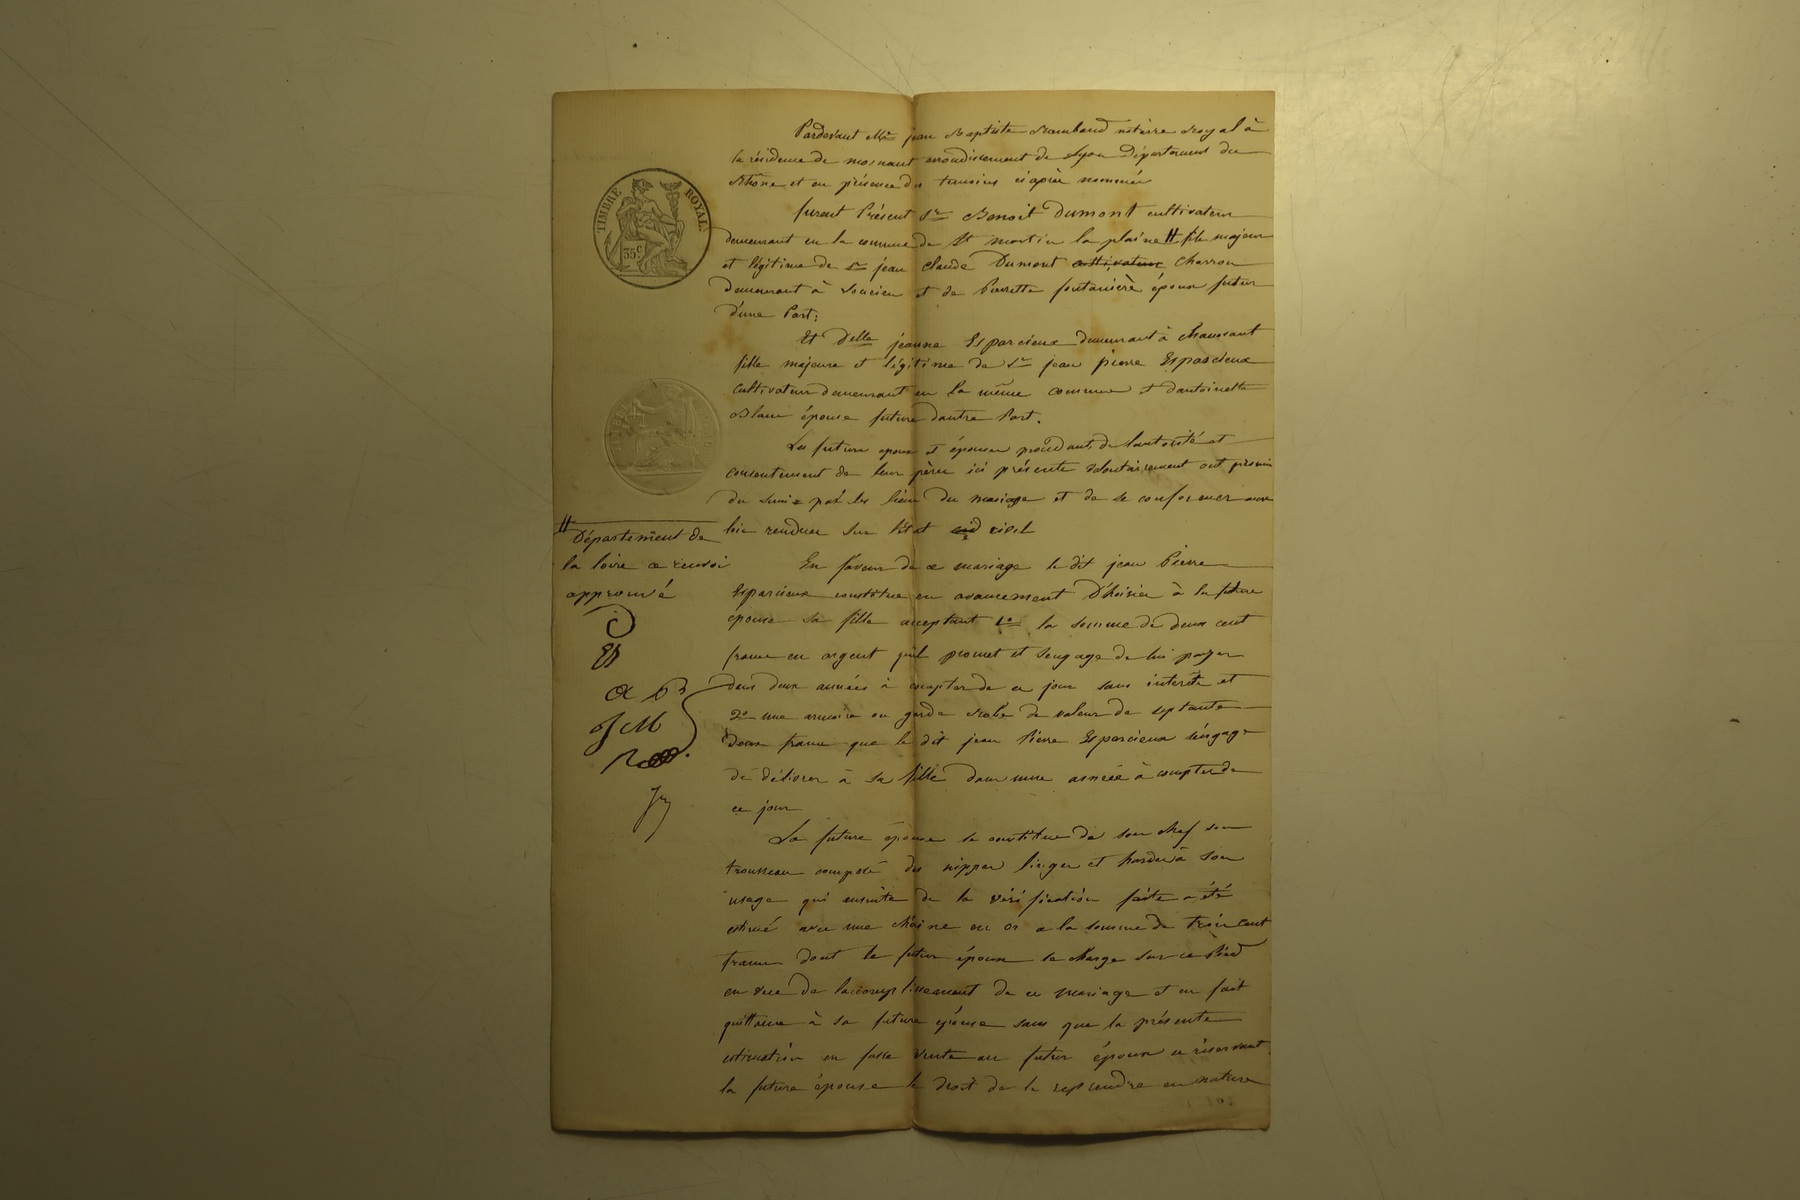 TIMBRE ROYAL.
35c
Pardevant Me jean Baptiste notaire Royal à
la résidence de mornant arrondissement de Lyon Département du
Rhône et en présence des temoins ci après nommés
furent Présent Sr Benoit Dumont cultivateur
demeurant en la commune de St martin la plaine # fils majeur
et légitime de Sr jean claude Dumont cultivateur Charron
demeurant à Soucieu et de Pierrette fontanière époux futur
d'une Part;
Et Delle jeanne Esparcieux demeurant à Chaussant
fille majeure et légitime de Sr jean pierre Esparcieux
cultivateur demeurant en la même commune et dantoinette
Blanc épouse future dautre Part.
Les futurs epoux et épouse procédant de lautorité et
consentement de leur pères ici présents volontairement ont promis
du sunir par les liens du mariage et de se conformer aux
lois rendues sur létat civil
# Département de
la loire ce renvoi
approuvé
D
JM
En faveur de ce mariage le dit jean Pierre
Esparcieux constitue en avancement D'hoirie à la future
epouse sa fille acceptant 1o la somme de deux cent
francs en argent quil promet et sengage de lui payer
dans deux années à compter de ce jour sans interêts et
2o une armoire ou garde robe de valeur de septante
Deux francs que le dit jean Pierre Esparcieux sengage
de délivrer à sa fille dans une année à compter de
ce jour
La future épouse se constitue de son chef son
trousseau composé des nippes linges et hardes à son
usage qui ensuite de la vérification faite a été
estimé avec une chaîne en or a la somme de trois cent
francs dont le futur époux se charge sur ce Pied
en vue de laccomplissement de ce mariage et en fait
quittance à sa future épouse sans que la présente
estimation en fasse vente au futur époux se réservant
la future épouse le droit de le reprendre en nature